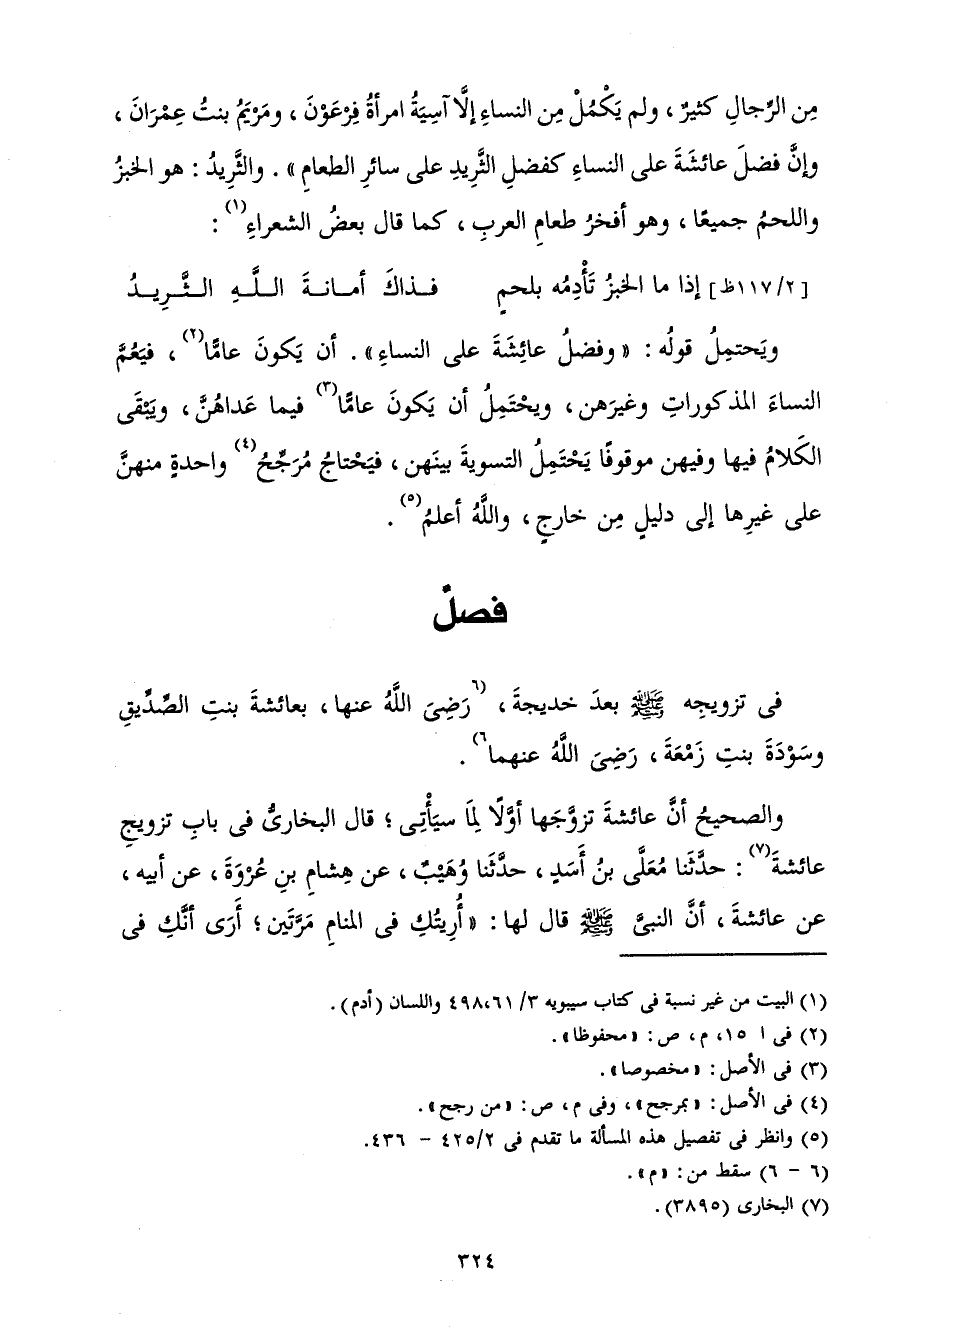 مِن الرِّجالِ كثيرٌ ، ولم يَكْمُلْ مِن النساءِ إلَّا آسِيَةُ امرأةُ فِرْعَوْنَ ، ومَرْيَمُ بنتُ عِمْرَانَ ،
وإنَّ فضلَ عائشَةَ على النساءِ كفضلِ الثَّريدِ على سائرِ الطعامِ » . والثَّرِيدُ : هو الخبزُ
واللحمُ جميعًا ، وهو أفخرُ طعامِ العربِ ، كما قال بعضُ الشعراءِ(١) :
[٢/ ١١٧ظ] إذا ما الخبزُ تَأْدِمُه بلحمٍ فـذاكَ أمـانـةَ الـلَّـهِ الـثَّـرِيـدُ
ويَحتمِلُ قولُه : « وفضلُ عائِشَةَ على النساءِ » . أن يَكونَ عامًّا(٢) ، فيَعُمَّ
النساءَ المذكوراتِ وغيرَهن ، ويحْتَمِلُ أن يَكونَ عامًّا(٣) فيما عَداهُنَّ ، ويَبْقَى
الكَلامُ فيها وفيهن موقوفًا يَحْتَمِلُ التسويةَ بينَهن ، فيَحْتاجُ مُرَجِّحُ(٤) واحدةٍ منهنَّ
على غيرِها إلى دليلٍ مِن خارجٍ ، واللَّهُ أعلمُ(٥) .
فصلٌ
فى تزويجِه ﷺ بعدَ خديجةَ ، (٦رَضِىَ اللَّهُ عنها ، بعائشةَ بنتِ الصِّدِّيقِ
وسَوْدَةَ بنتِ زَمْعَةَ ، رَضِىَ اللَّهُ عنهما٦) .
والصحيحُ أنَّ عائشةَ تزوَّجَها أوَّلًا لِمَا سيَأْتِى ؛ قال البخارىُّ فى بابِ تزويجِ
عائشةَ(٧) : حدَّثَنا مُعَلَّى بنُ أَسَدٍ ، حدَّثَنا وُهَيْبٌ ، عن هِشامِ بنِ عُرْوَةَ ، عن أبيه ،
عن عائشةَ ، أنَّ النبىَّ ﷺ قال لها : « أُرِيتُكِ فى المنامِ مَرَّتَين ؛ أَرَى أنَّكِ فى
(١) البيت من غير نسبة فى كتاب سيبويه ٣/ ٦١، ٤٩٨ واللسان (أدم) .
(٢) فى ا ١٥، م ، ص : «محفوظا» .
(٣) فى الأصل : «مخصوصا» .
(٤) فى الأصل : «بمرجح» ، وفى م ، ص : «من رجح» .
(٥) وانظر فى تفصيل هذه المسألة ما تقدم فى ٢/ ٤٢٥ - ٤٣٦ .
(٦ - ٦) سقط من : «م» .
(٧) البخارى (٣٨٩٥) .
٣٢٤